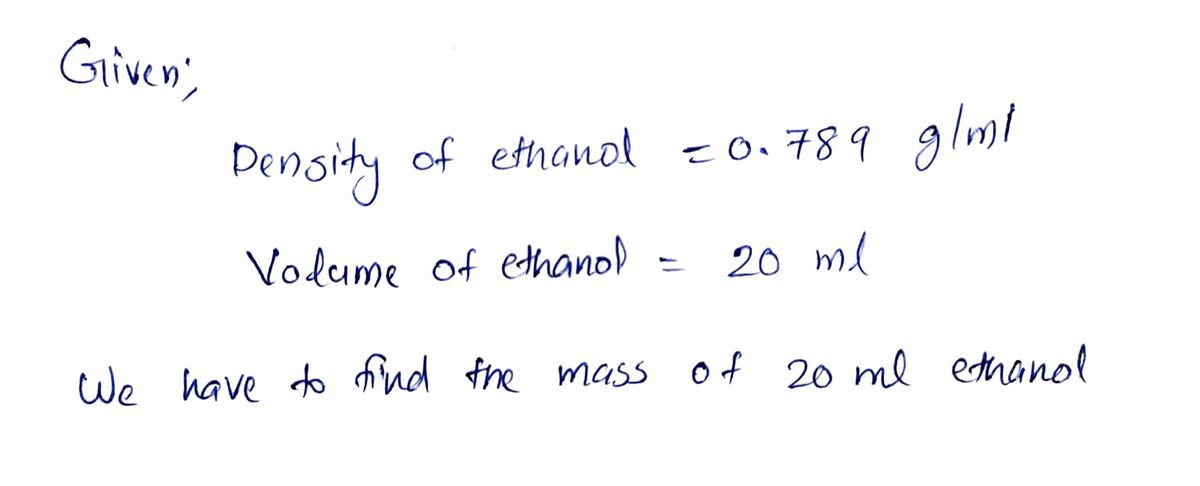 Given;
Density of ethanol = 0.789 g/ml
Volume of ethanol = 20 ml
We have to find the mass of 20 ml ethanol